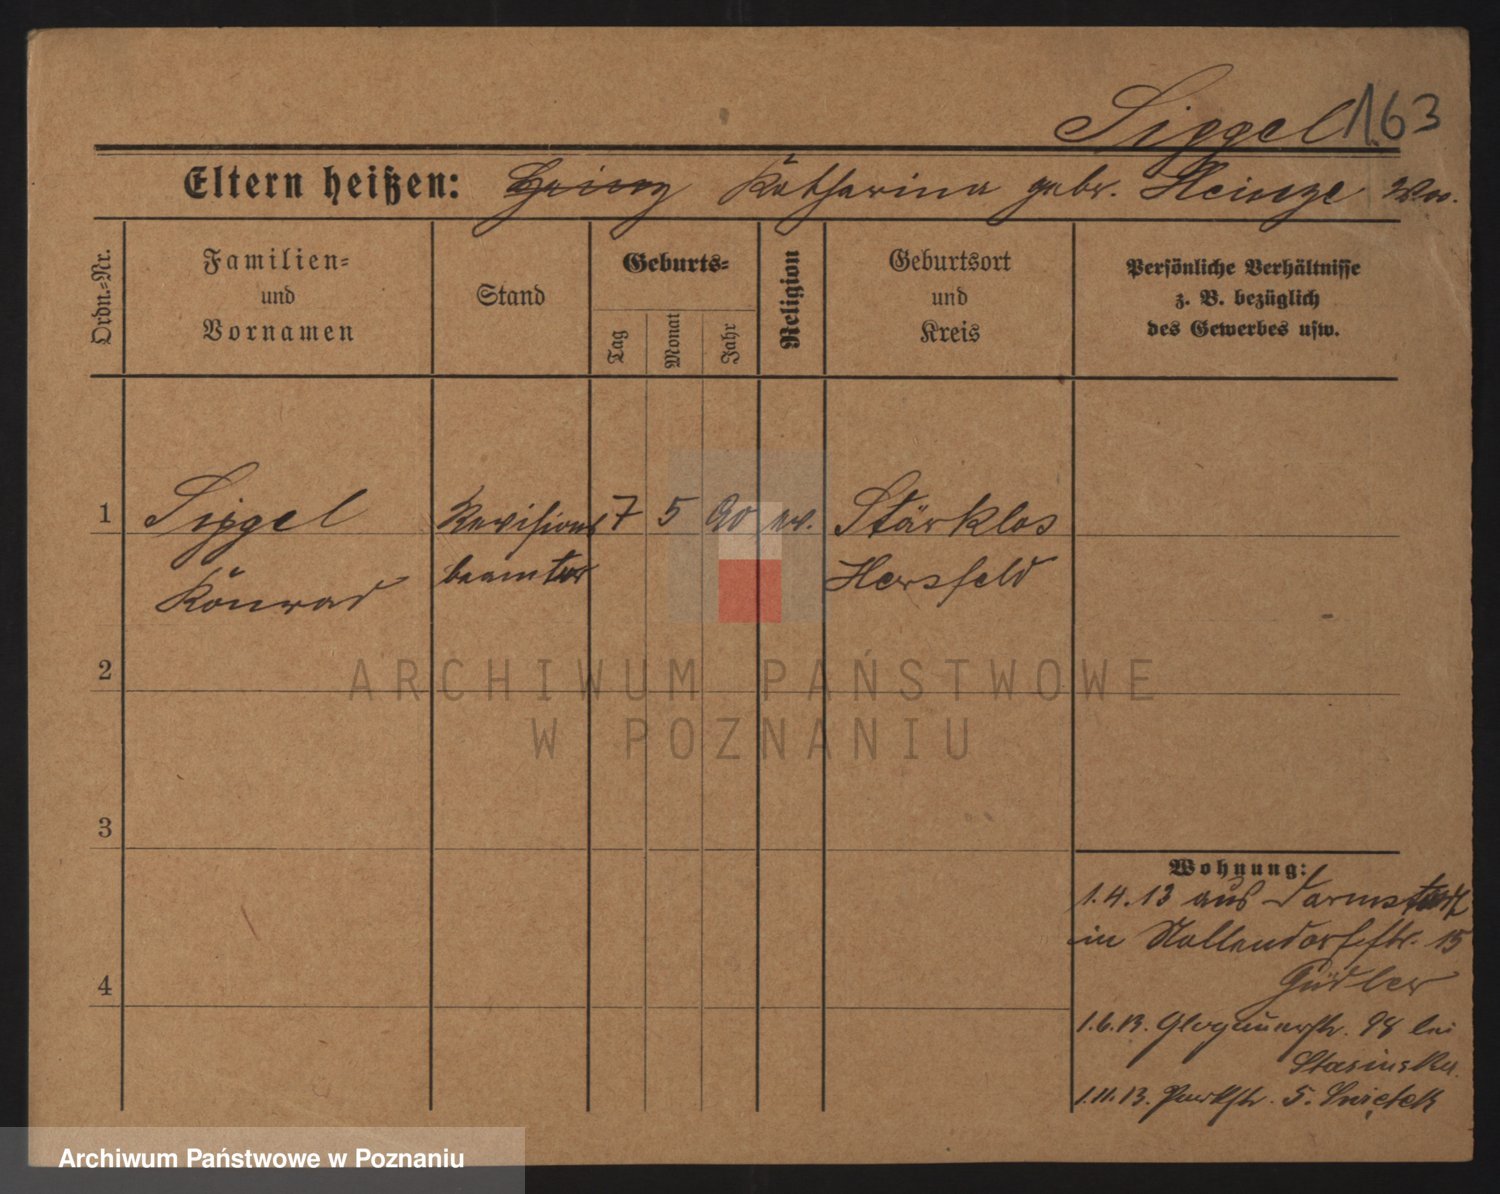 Sippel 163
Eltern heißen: Heinr Katharina gebr. Heinze Ww.
Ordn.-Nr.
Familien-
und
Vornamen
Stand
Geburts-
Tag
Monat
Jahr
Religion
Geburtsort
und
Kreis
Persönliche Verhältnisse
z. B. bezüglich
des Gewerbes usw.
1 Sippel Revisions 7 5 90 ev. Stärklos
Konrad beamter Hersfeld
2
3
4
Wohnung:
1.4.13 aus Darmstadt
in Nollendorfstr. 15
1.6.13. Glogauerstr. 98 bei
Stasinska.
1.11.13. Parkstr. 5.
ARCHIWUM PAŃSTWOWE
W POZNANIU
Archiwum Państwowe w Poznaniu